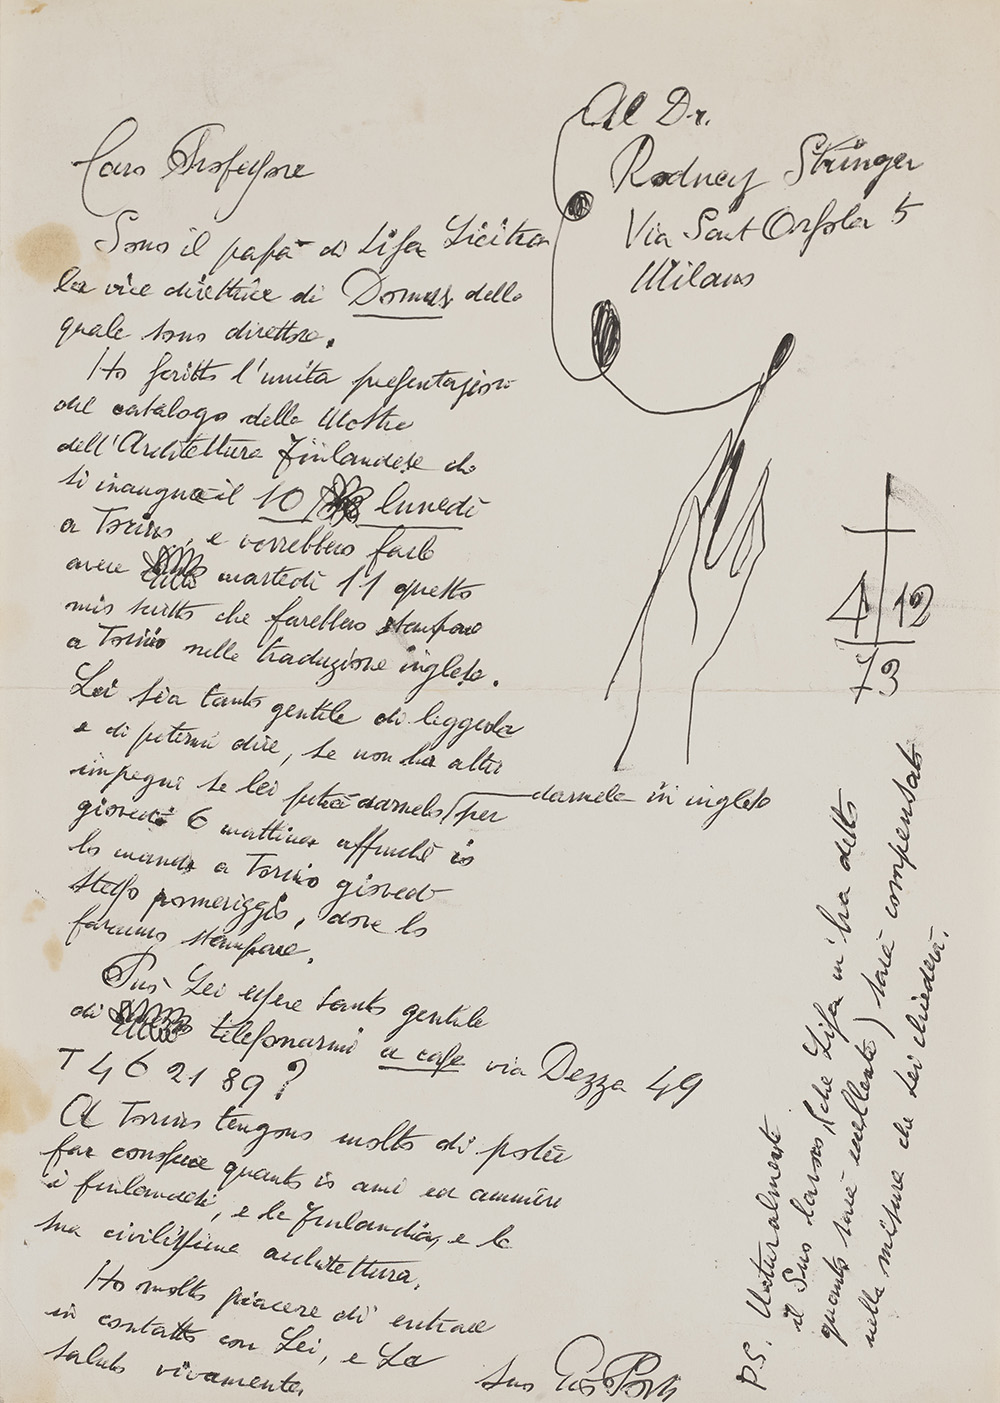 Al Dr.
Rodney Stringer
Via Sant Orsola 5
Milano
Caro Professore
Sono il papà di Lisa Licitra
la vice direttrice di Domus della
quale sono direttore.
Ho scritto l'unita presentazione
del catalogo della Mostra
dell'Architettura Finlandese che
si inaugura il 10 lunedì
a Torino, e vorrebbero farle
avere martedì 11 questo
mio scritto che farebbero stampare
a Torino nella traduzione inglese.
Lei sia tanto gentile di leggerla
e di potermi dire, se non ha altri
impegni se lei potrà darmelo (per
darmela in inglese
giovedì 6 mattina affinché io
lo mando a Torino giovedì
stesso pomeriggio, dove lo
faranno stampare.
Può Lei essere tanto gentile
di telefonarmi a casa via Dezza 49
T 4 6 2 1 89?
A Torino tengono molto di poter
far conoscere quanto io ami ed ammiri
i finlandesi, e la Finlandia, e la
sua civilissima architettura.
Ho molto piacere di entrare
in contatto con Lei, e La
saluto vivamente
suo Gio Ponti
4 19
P.S. Naturalmente
il Suo lavoro (che Lisa mi ha detto
quanto sarà eccellente) sarà compensato
nella misura che Lei chiederà.